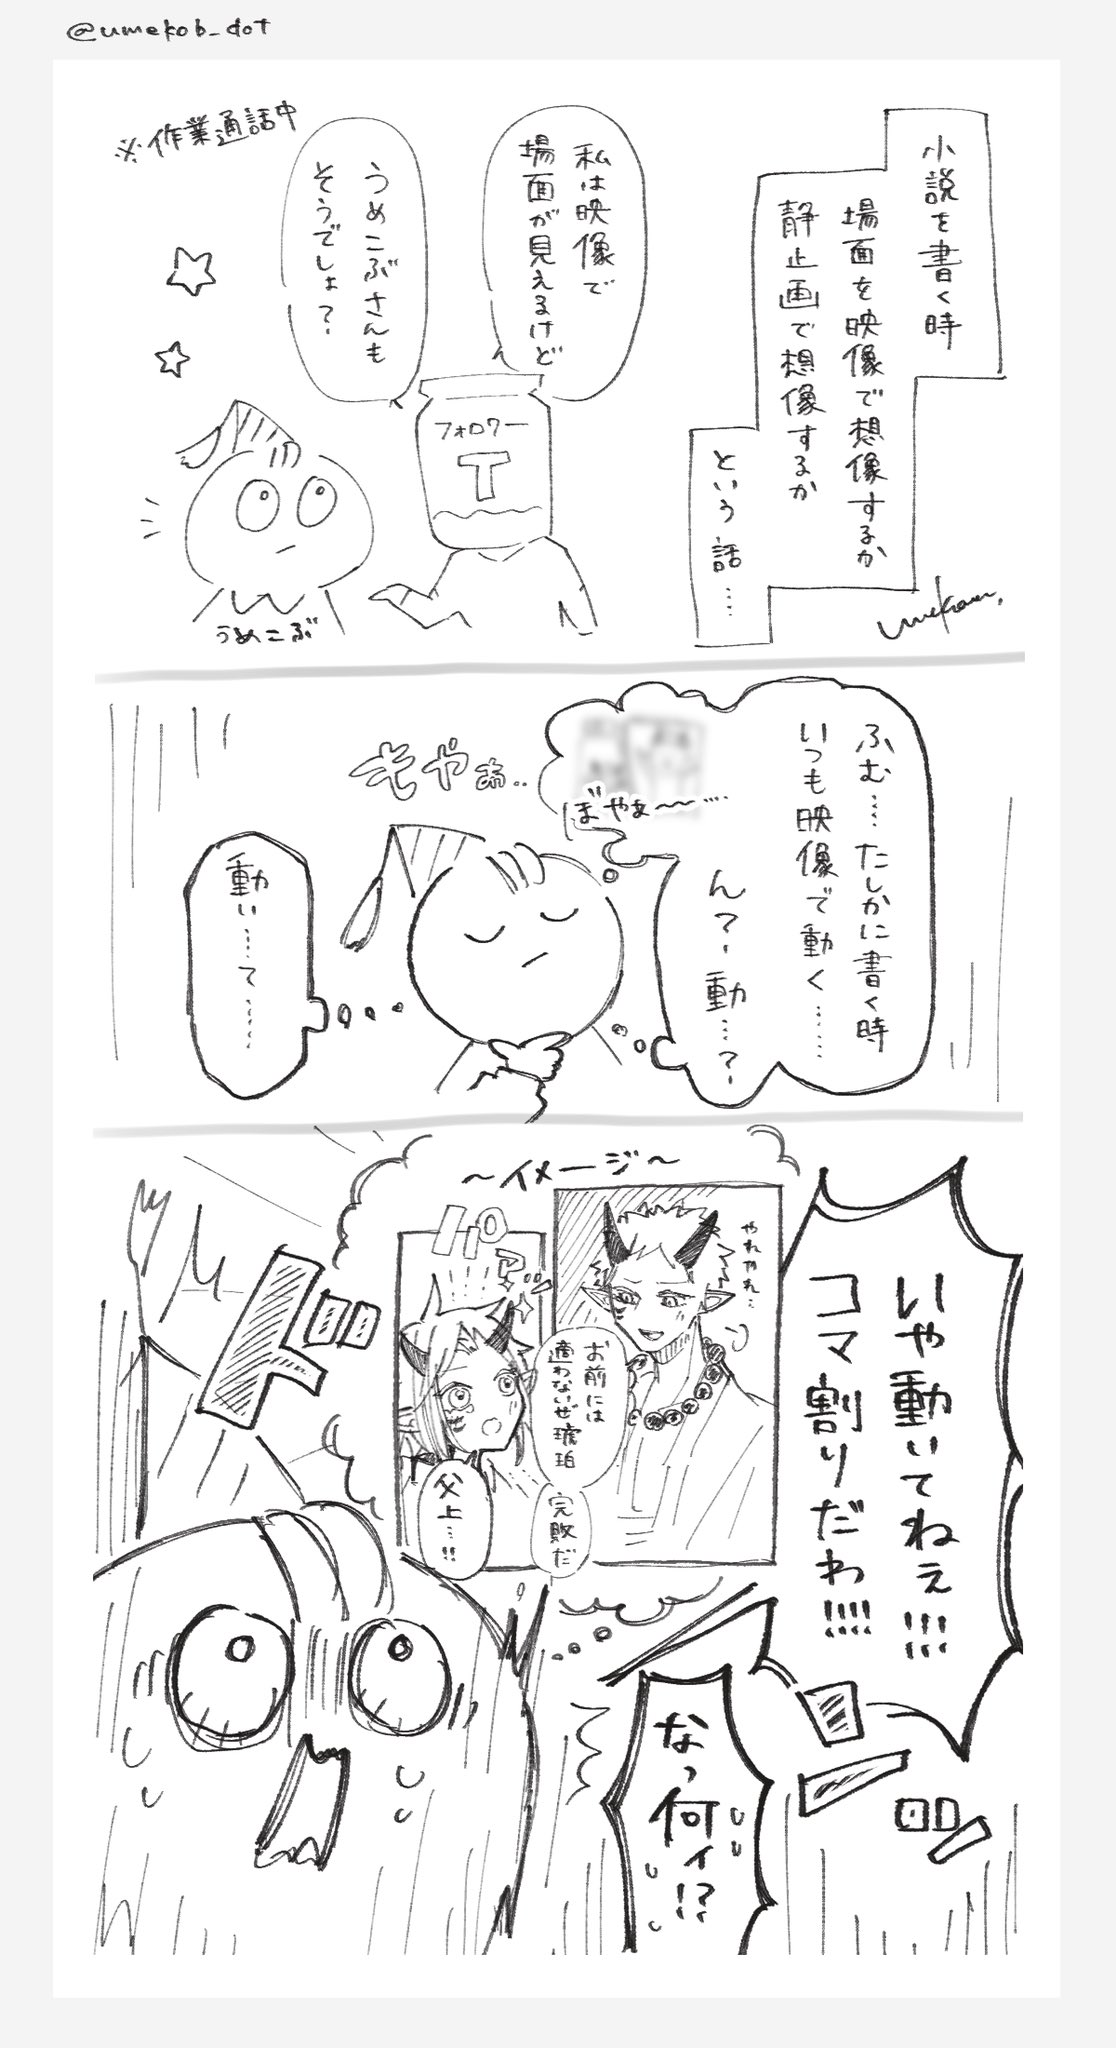 @umekob_dot
小説を書く時
場面を映像で想像するか
静止画で想像するか
という話……
私は映像で
場面が見えるけど
うめこぶさんも
そうでしょ?
※作業通話中
フォロワー
T
うめこぶ
ふむ……たしかに書く時
いつも映像で動く……
ん?動…?
ぼやぁ〜〜…
もやぁ…
動い……て……
いや動いてねぇ!!!
コマ割りだわ!!!!
〜イメージ〜
やれやれ…
お前には
適わないぜ琥珀
完敗だ
パアッ
父上…!!
なっ何ィ!?